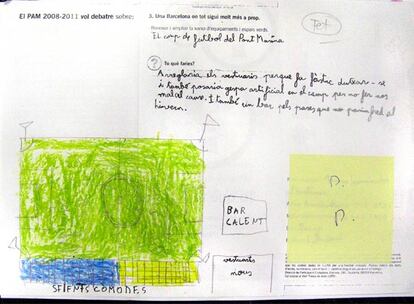 El PAM 2008-2011 vol debatre sobre:
3. Una Barcelona on tot sigui molt més a prop.
Renovar i ampliar la xarxa d'equipaments i espais verds.
El camp de futbol del Pont Marina
? Tu què faries?
Arreglaria els vestuaris perque fa fàstic dutxar-se
i també posaria gespa artificial en el camp per no fer nos
mal al caure. I també un bar pels pares que no passin fred al
hivern.
BAR
CALENT
vestuaris
nous
SEIENTS COMODES
P.
P.